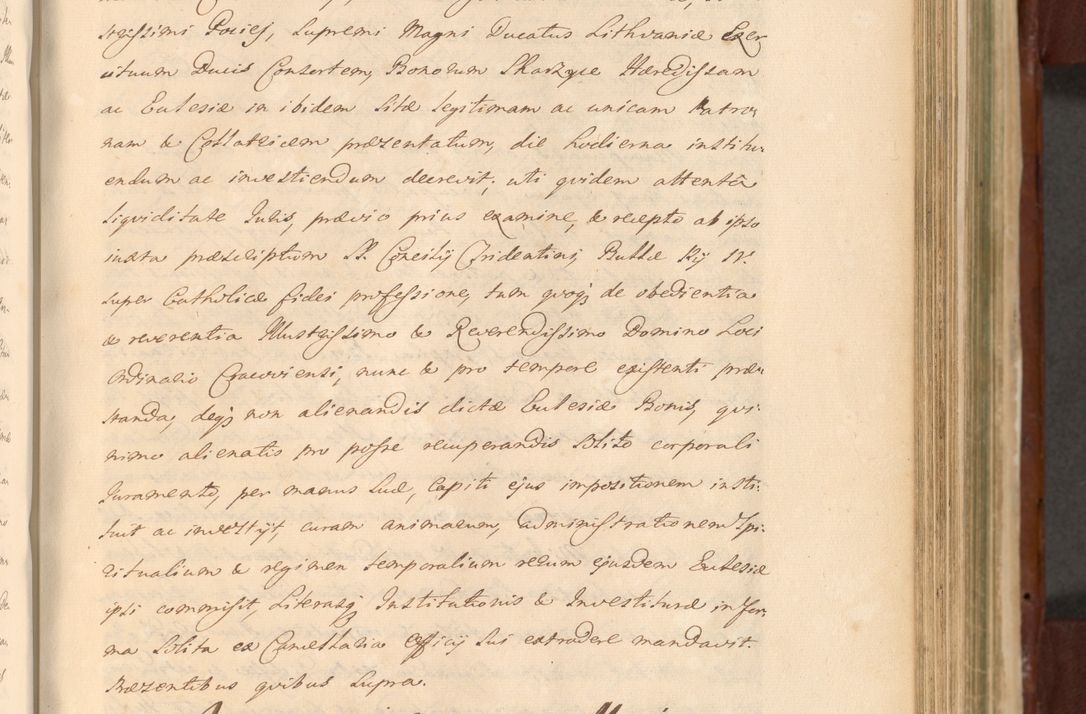 strissimi Pociej, Supremi Magni Ducatus Lithvaniæ Exer
cituum Ducis Consortem, Bonorum Skarzyce Hæredissam
ac Eclesiæ in ibidem Sitæ legitimam ac unicam Patro-
nam & Collatricem præzentatum, die hodierna institu-
endum ac investiendum decrevit; uti qvidem attentâ
Liqviditate Juris, prævio prius examine, & recepto ab ipso
iuxta præscriptum SS. Concilij Tridentini, Bullæ Pij IV.
super Catholicæ fidei professione, tum qvoq; de obedientia
& reverentia Illustrissimo & Reverendissimo Domino Loci
Ordinario Cracoviensi, nunc & pro tempore existenti præs-
tanda, deq; non alienandis dictæ Eclesiæ Bonis, qvi-
nimo alienatis pro posse recuperandis solito corporali
Juramento, per manus suæ, Capiti ejus impositionem insti-
tuit ac investijt, curam animarum, administrationem Spi-
ritualium & regimen temporalium rerum ejusdem Eclesiæ
ipsi commisit, Literasq; Institutionis & Investituræ in for-
ma solita ex Cancellaria Officij Sui extradere mandavit.
Præzentibus qvibus supra.